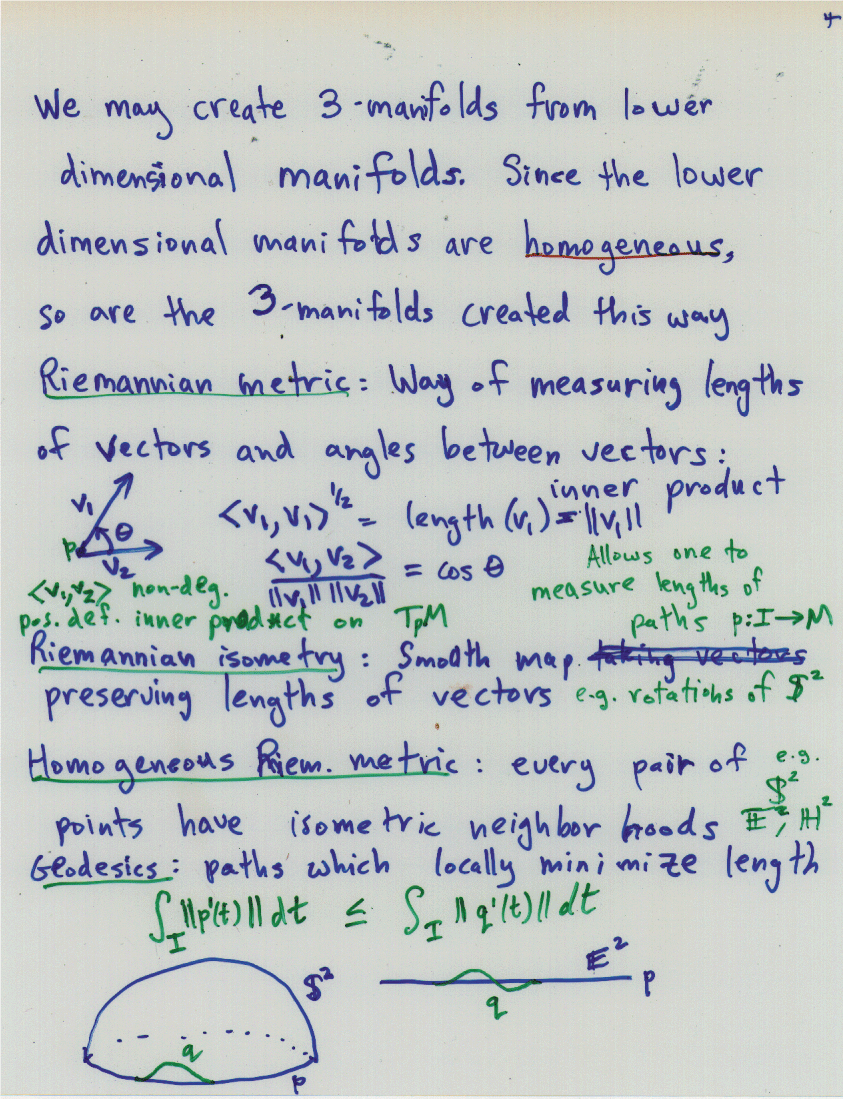 4
We may create 3-manifolds from lower
dimensional manifolds. Since the lower
dimensional manifolds are homogeneous,
so are the 3-manifolds created this way
Riemannian metric: Way of measuring lengths
of vectors and angles between vectors:
inner product
v₁ θ p v₂
<v₁, v₁>^1/2 = length (v₁) = ||v₁||
<v₁, v₂> / ||v₁|| ||v₂|| = cos θ
Allows one to
measure lengths of
paths p: I → M
<v₁,v₂> non-deg.
pos. def. inner product on TpM
Riemannian isometry: Smooth map taking vectors
preserving lengths of vectors e.g. rotations of 𝕊²
Homogeneous Riem. metric: every pair of e.g.
𝕊²
points have isometric neighborhoods 𝔼², ℍ²
Geodesics: paths which locally minimize length
∫_I ||p'(t)|| dt ≤ ∫_I ||q'(t)|| dt
𝕊² 𝔼²
p
q
q
p